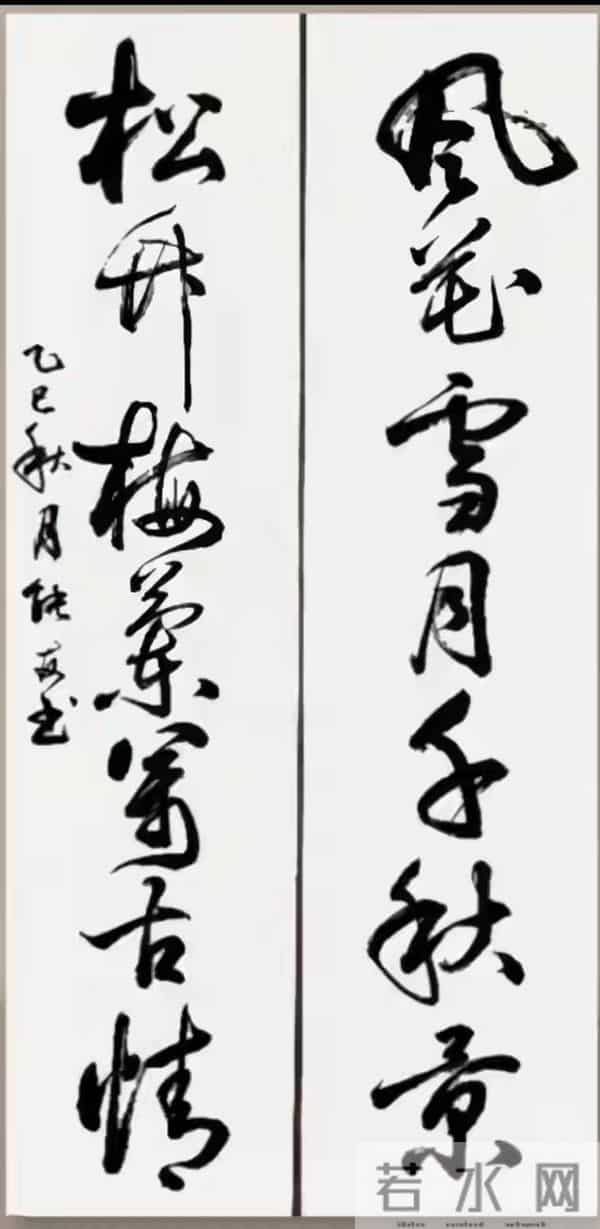 風花雪月千秋景
松竹梅蘭萬古情
乙巳秋月
若水网